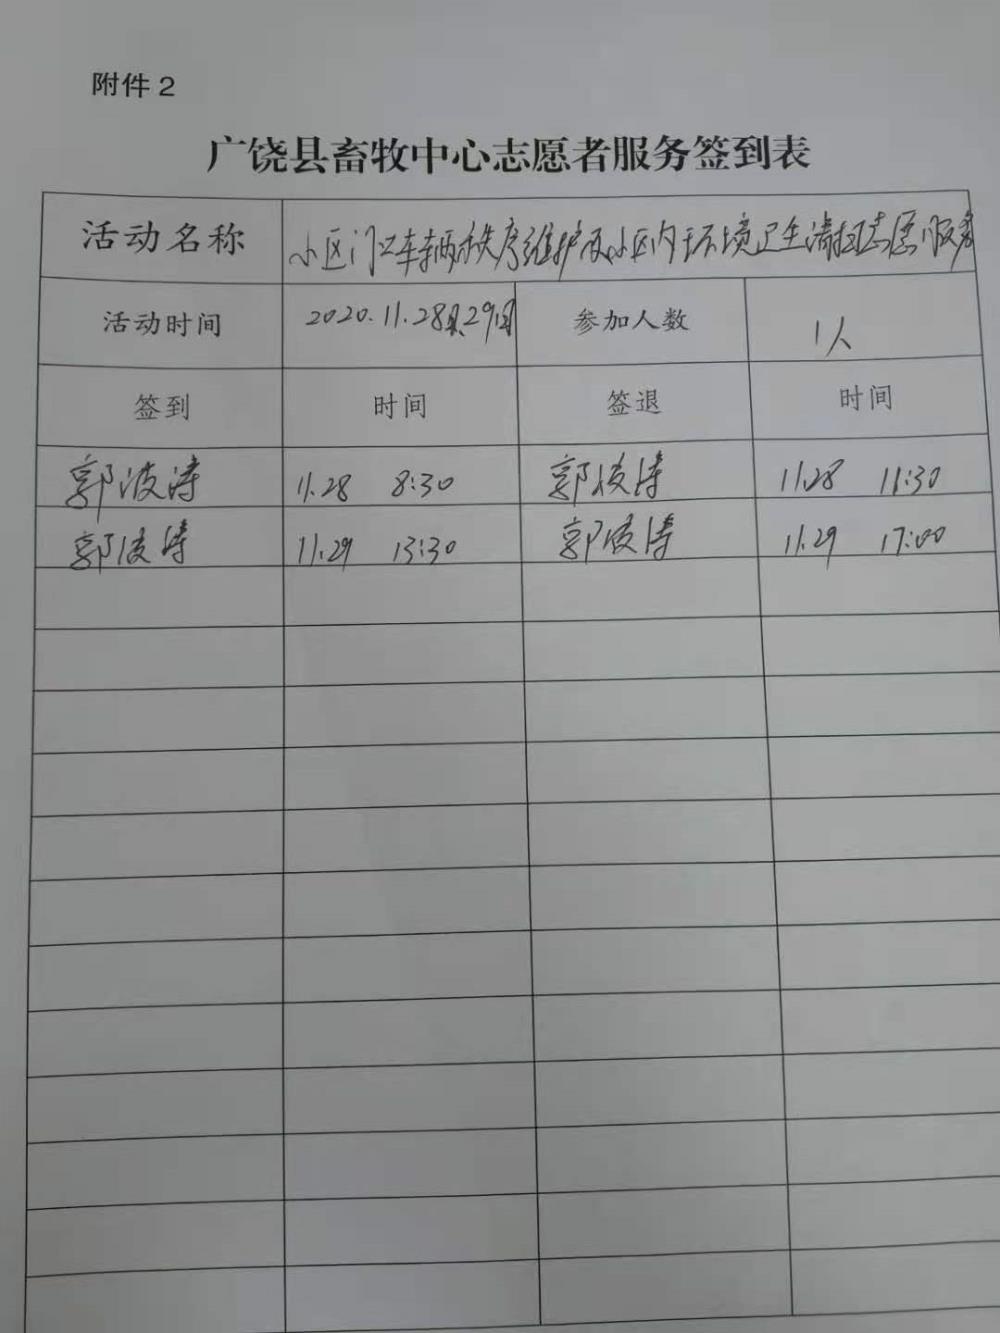 附件2
广饶县畜牧中心志愿者服务签到表
活动名称 小区门口车辆秩序维护及小区内环境卫生清扫志愿服务
活动时间 2020.11.28 29日 参加人数 1人
签到 时间 签退 时间
郭波涛 11.28 8:30 郭波涛 11.28 11:30
郭波涛 11.29 13:30 郭波涛 11.29 17:00